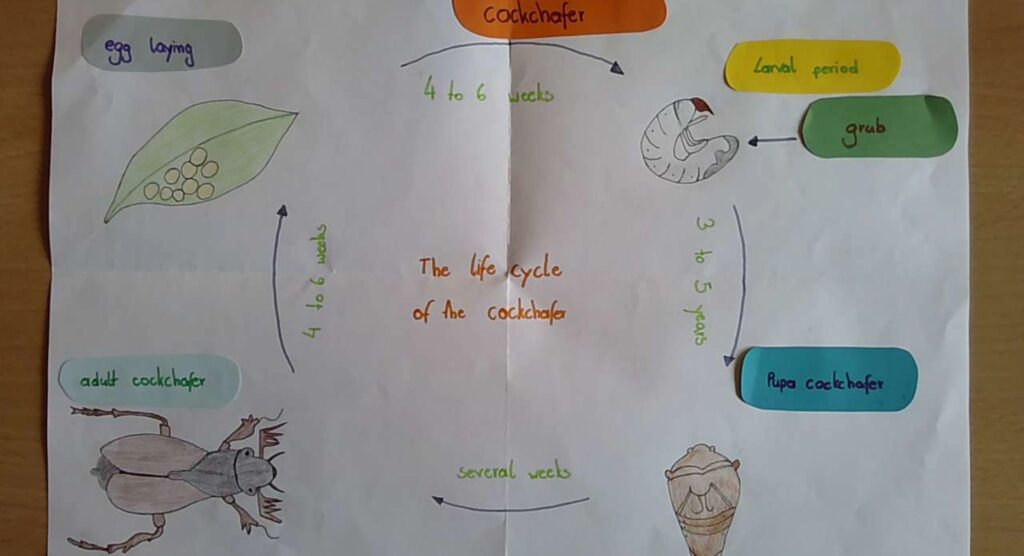 cockchafer
egg laying
4 to 6 weeks
Larval period
grub
3 to 5 years
The life cycle
of the cockchafer
4 to 6 weeks
adult cockchafer
Pupa cockchafer
several weeks